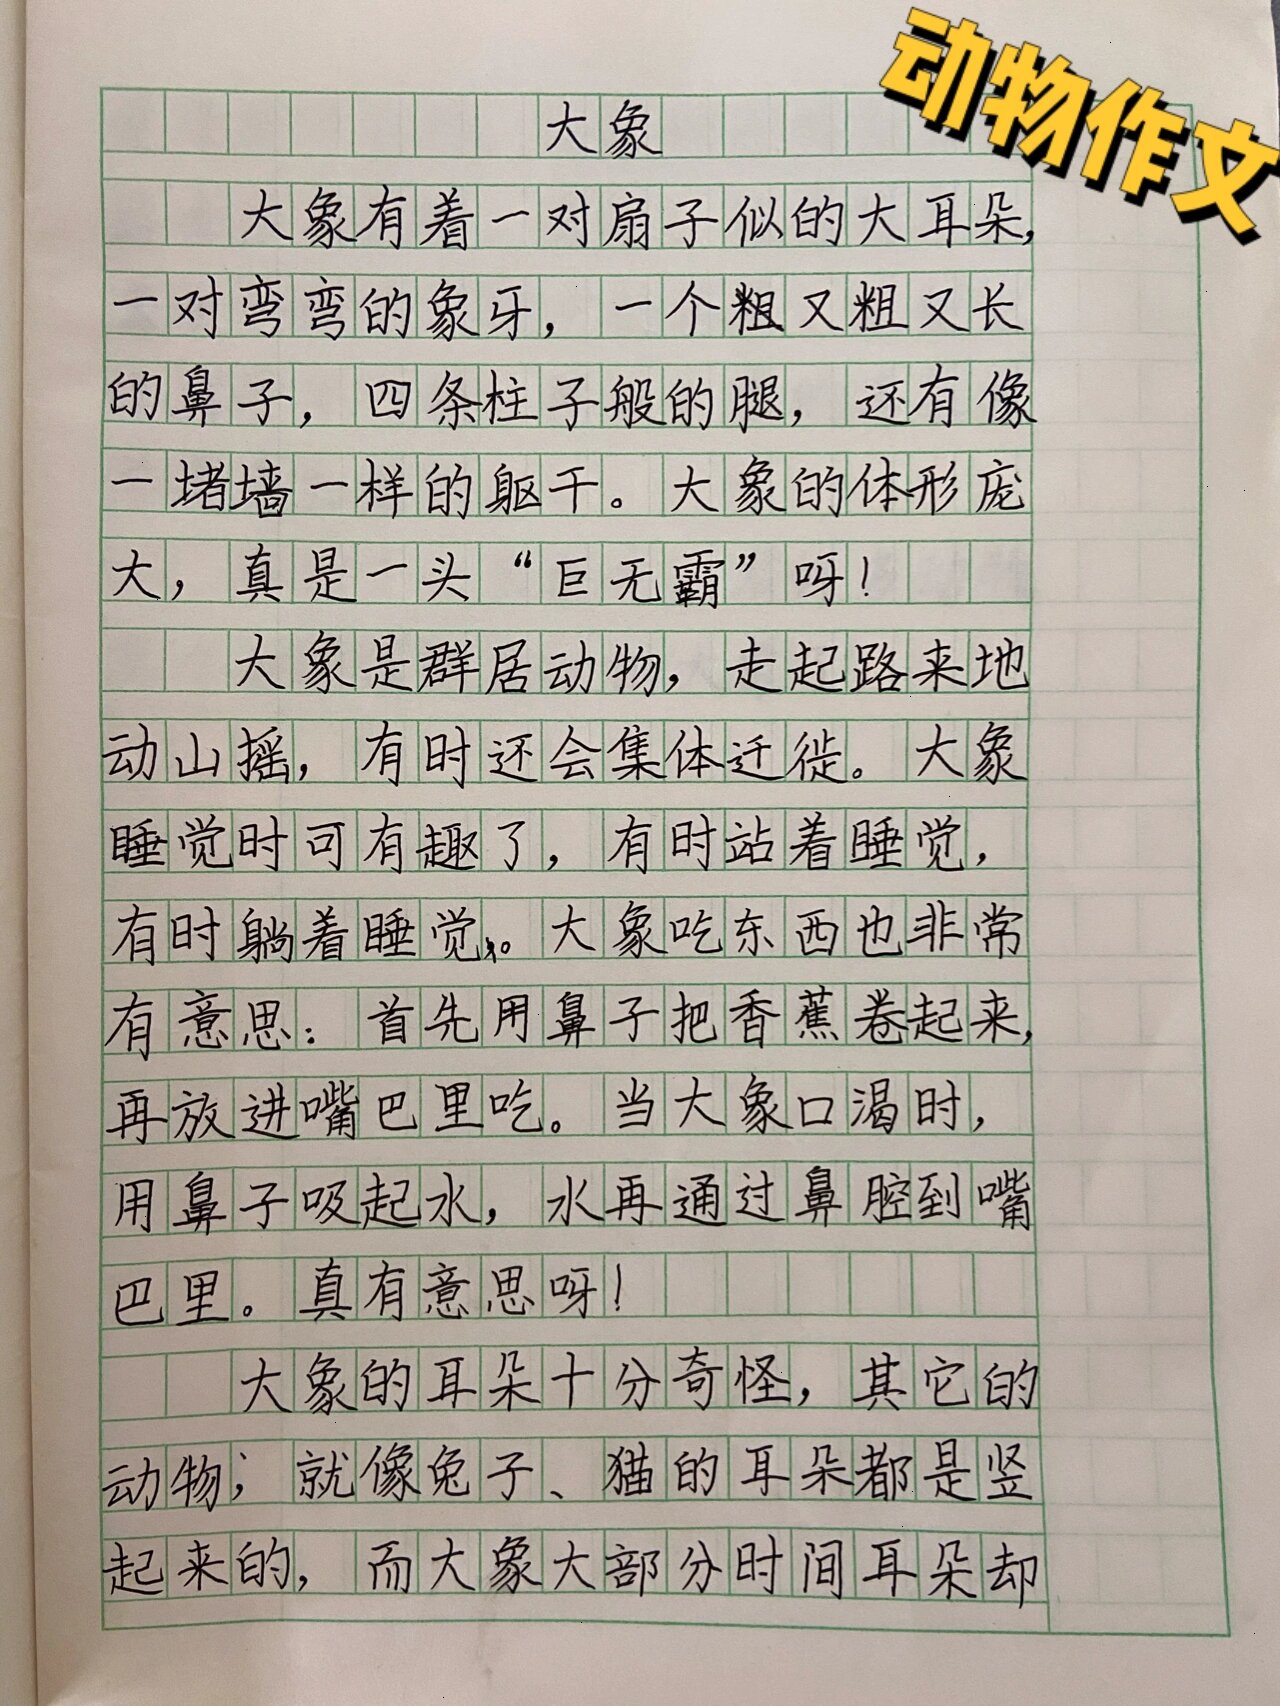 动物作文
大象
大象有着一对扇子似的大耳朵,
一对弯弯的象牙，一个粗又粗又长
的鼻子，四条柱子般的腿，还有像
一堵墙一样的躯干。大象的体形庞
大，真是一头“巨无霸”呀！
大象是群居动物，走起路来地
动山摇，有时还会集体迁徙。大象
睡觉时可有趣了，有时站着睡觉，
有时躺着睡觉。大象吃东西也非常
有意思：首先用鼻子把香蕉卷起来,
再放进嘴巴里吃。当大象口渴时，
用鼻子吸起水，水再通过鼻腔到嘴
巴里。真有意思呀！
大象的耳朵十分奇怪，其它的
动物；就像兔子、猫的耳朵都是竖
起来的，而大象大部分时间耳朵却